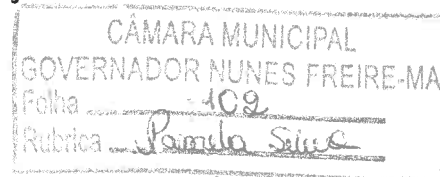 CÂMARA MUNICIPAL
GOVERNADOR NUNES FREIRE-MA
Folha 102
Rubrica Pamila Silva